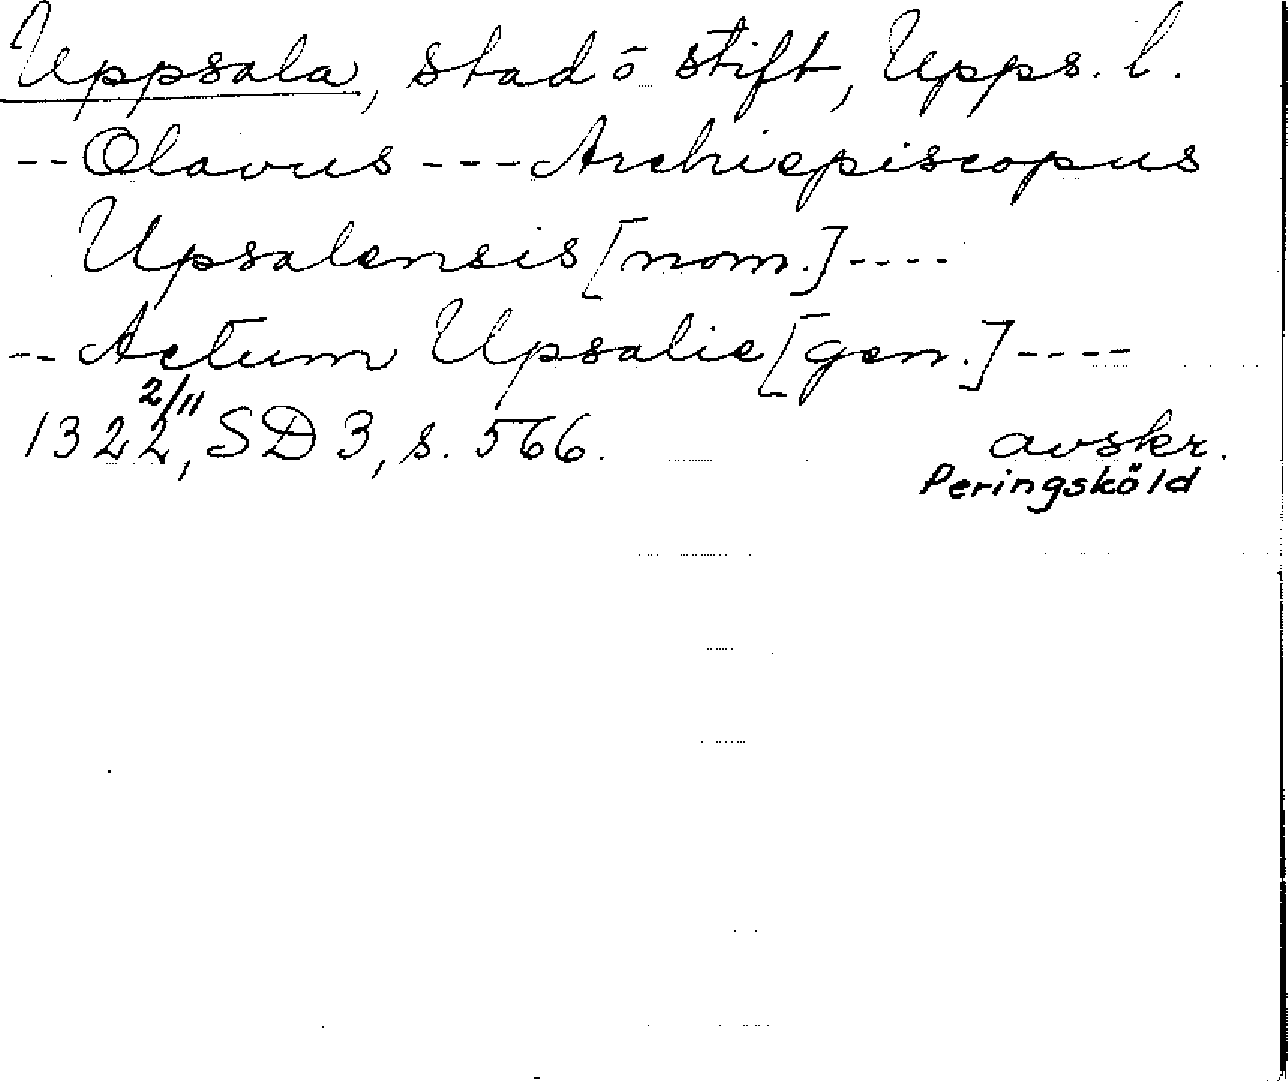 Uppsala, stad ō stift, Upps. l.
-- Olavus --- Archiepiscopus
Upsalensis [nom.] ----
-- Actum Upsalie [gen.] ----
1322 2/11, SD 3, s. 566. avskr.
Peringsköld